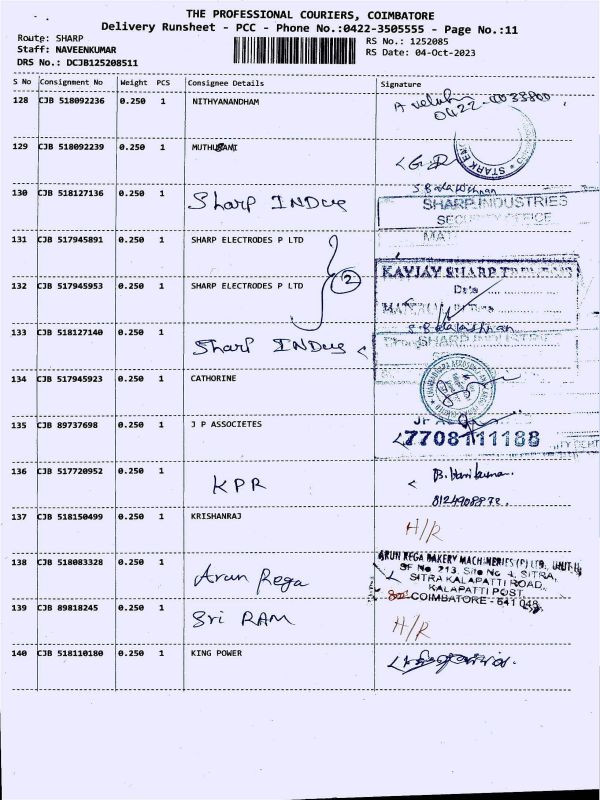 THE PROFESSIONAL COURIERS, COIMBATORE
Delivery Runsheet - PCC - Phone No.:0422-3505555 - Page No.:11
Route: SHARP
RS No.: 1252085
Staff: NAVEENKUMAR
RS Date: 04-Oct-2023
DRS No.: DCJB125208511
S No Consignment No Weight PCS Consignee Details Signature
128 CJB 518092236 0.250 1 NITHYANANDHAM
129 CJB 518092239 0.250 1
STARK
S Balakrishnan
130 CJB 518127136 0.250 1 Sharp INDus
SHARP INDUSTRIES
SECURITY OFFICE
131 CJB 517945891 0.250 1 SHARP ELECTRODES P LTD
MAT
KAYJAY SHARP
132 CJB 517945953 0.250 1 SHARP ELECTRODES P LTD 2
Date
S. Balakrishnan
133 CJB 518127140 0.250 1 Sharp INDus
SHARP INDUSTRIES
134 CJB 517945923 0.250 1 CATHORINE
135 CJB 89737698 0.250 1 J P ASSOCIETES
7708111188
136 CJB 517720952 0.250 1 KPR B. Harikumar.
137 CJB 518150499 0.250 1 KRISHANRAJ H/R
138 CJB 518083328 0.250 1 Arun Rega
ARUN REGA BAKERY MACHINERIES (P) LTD., UNIT-II
SF No 213, Site No 4, SITRA,
SITRA KALAPATTI ROAD,
KALAPATTI POST
COIMBATORE - 641 048
139 CJB 89818245 0.250 1 Sri RAM H/R
140 CJB 518110180 0.250 1 KING POWER